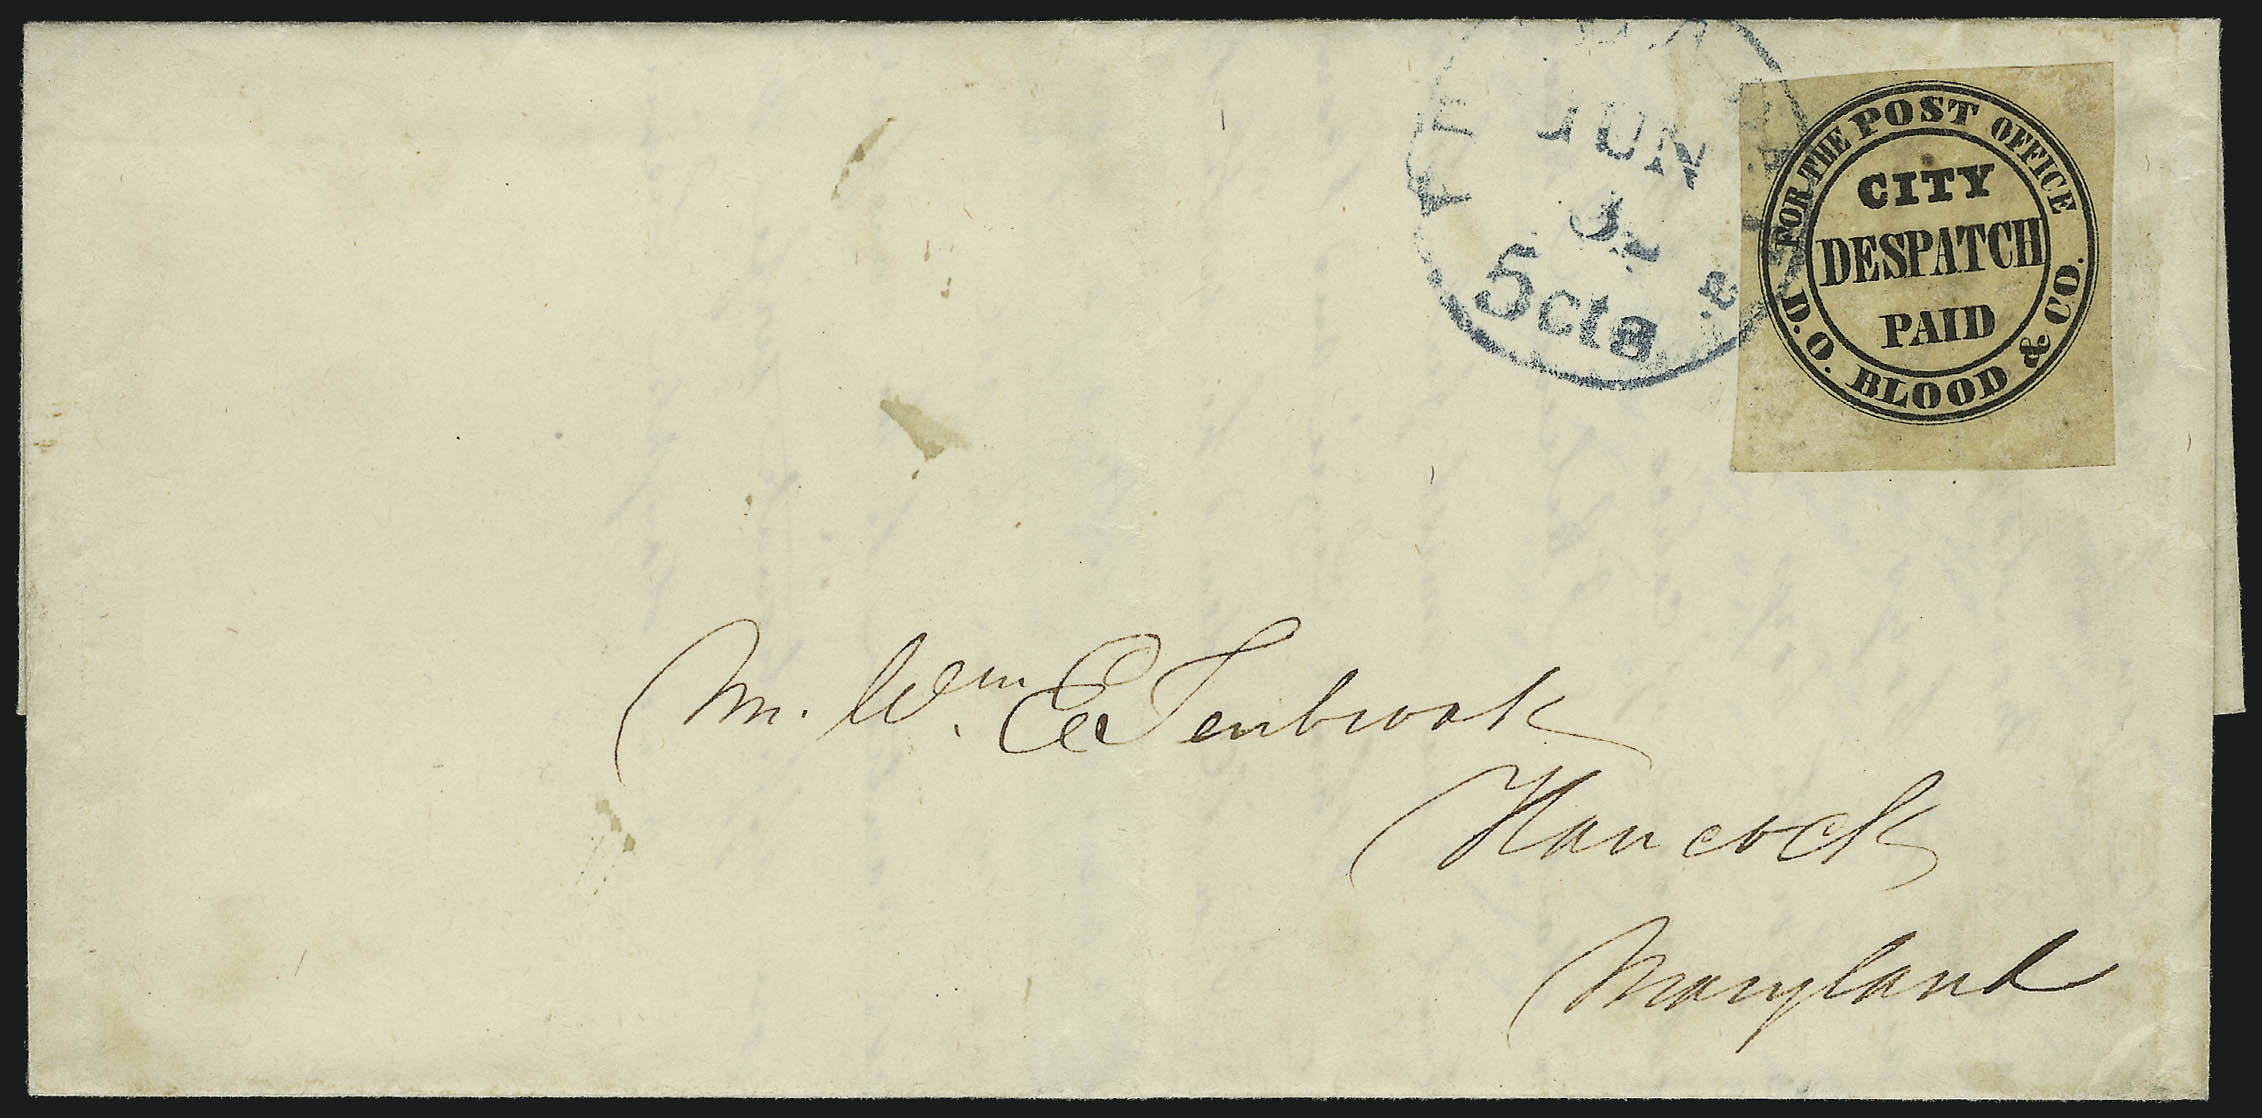 JUN
5cts
FOR THE POST OFFICE
CITY
DESPATCH
PAID
D.O. BLOOD & CO.
Mr. Wm. E Tenbrook
Hancock
Maryland